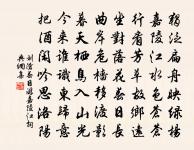 獨泛扁舟映綠楊
嘉陵江水色蒼蒼
行看芳草故鄉遠
坐對落花春日長
曲岸危檣移渡影
暮天栖鳥入山光
今來誰識東歸意
把酒閑吟思洛陽
劉滄春日遊嘉陵江詞
典網集